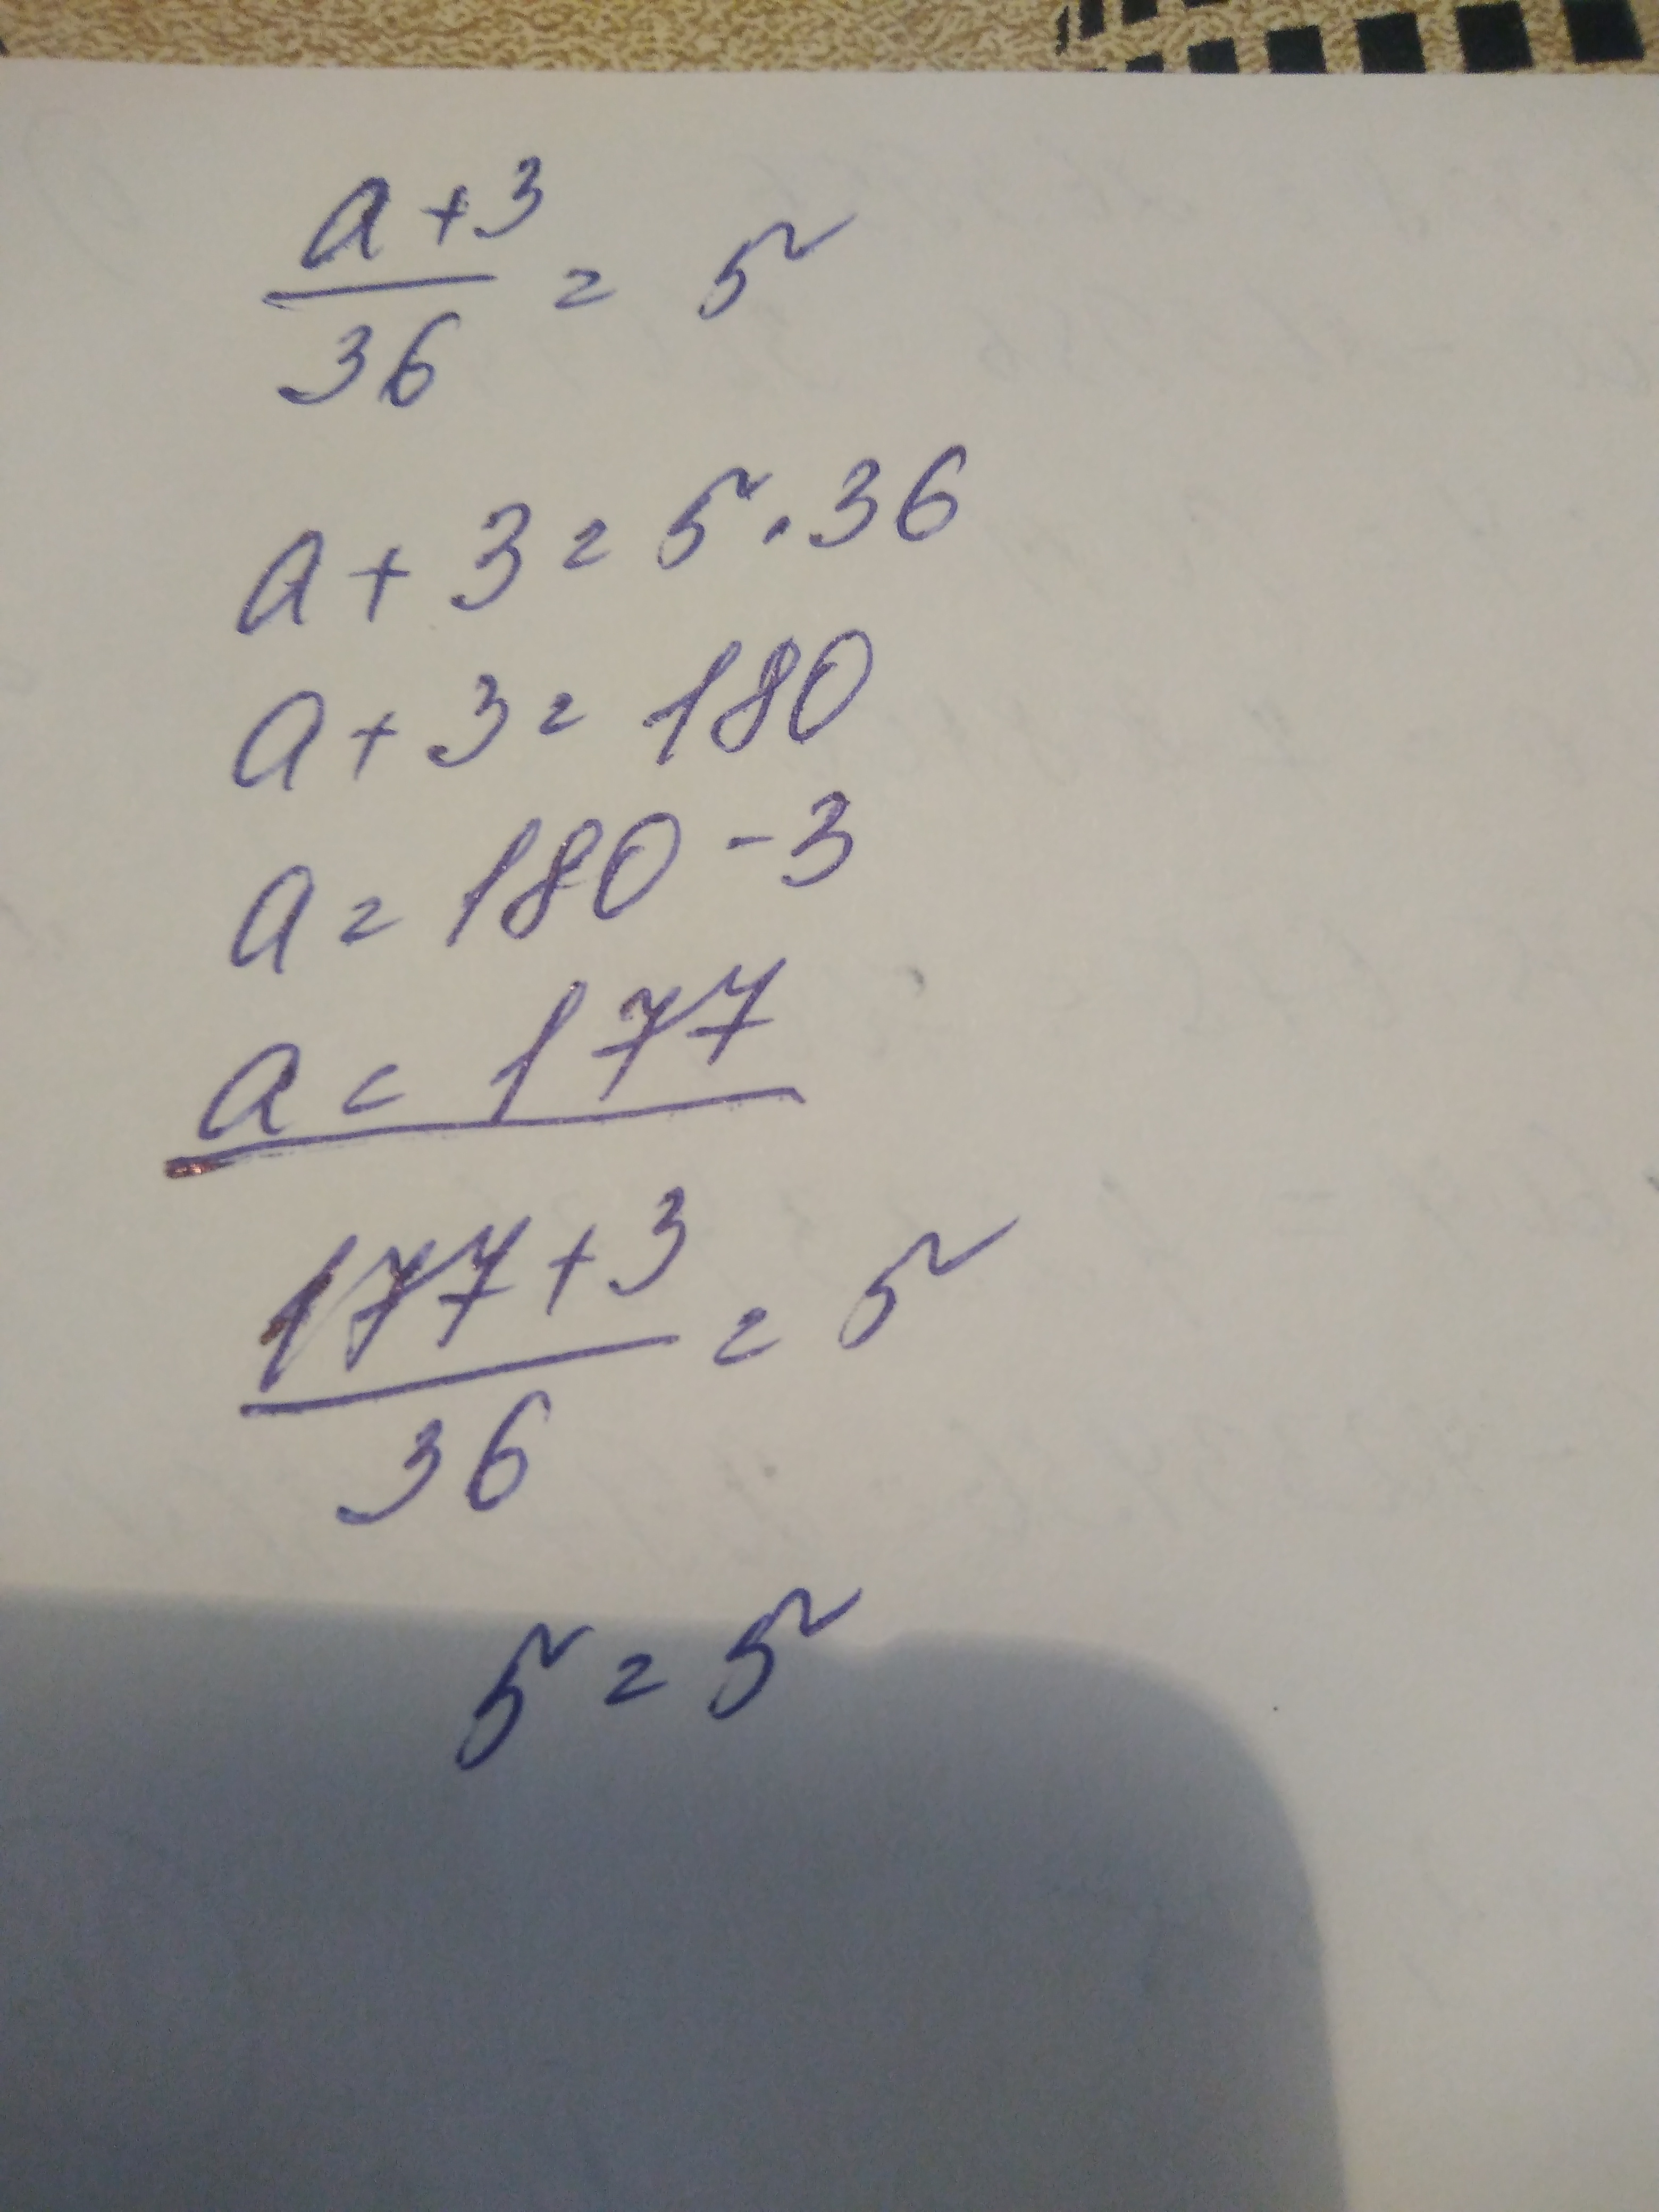 a+3/36 = 5
a+3=5·36
a+3=180
a=180-3
a=177
177+3/36 = 5
5=5